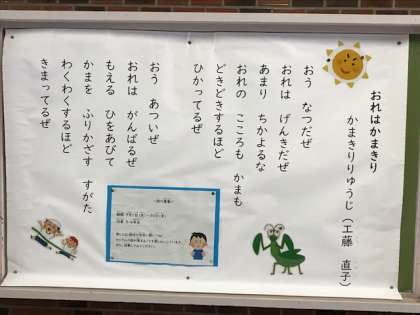 おれはかまきり
かまきりりゅうじ（工藤　直子）
おう　なつだぜ
おれは　げんきだぜ
あまり　ちかよるな
おれの　こころも　かまも
どきどきするほど
ひかってるぜ
おう　あついぜ
おれは　がんばるぜ
もえる　ひをあびて
かまを　ふりかざす　すがた
わくわくするほど
きまってるぜ